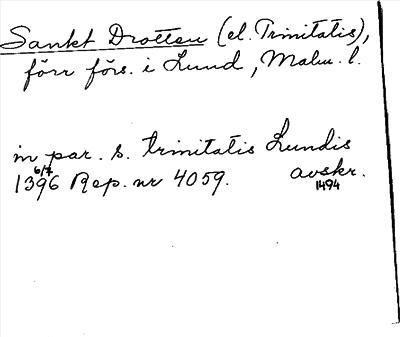 Sankt Drotten (el. Trinitatis),
förr förs. i Lund, Malm. l.
in par. s. trinitatis Lundis
6/7
1396 Rep. nr 4059. avskr.
1494